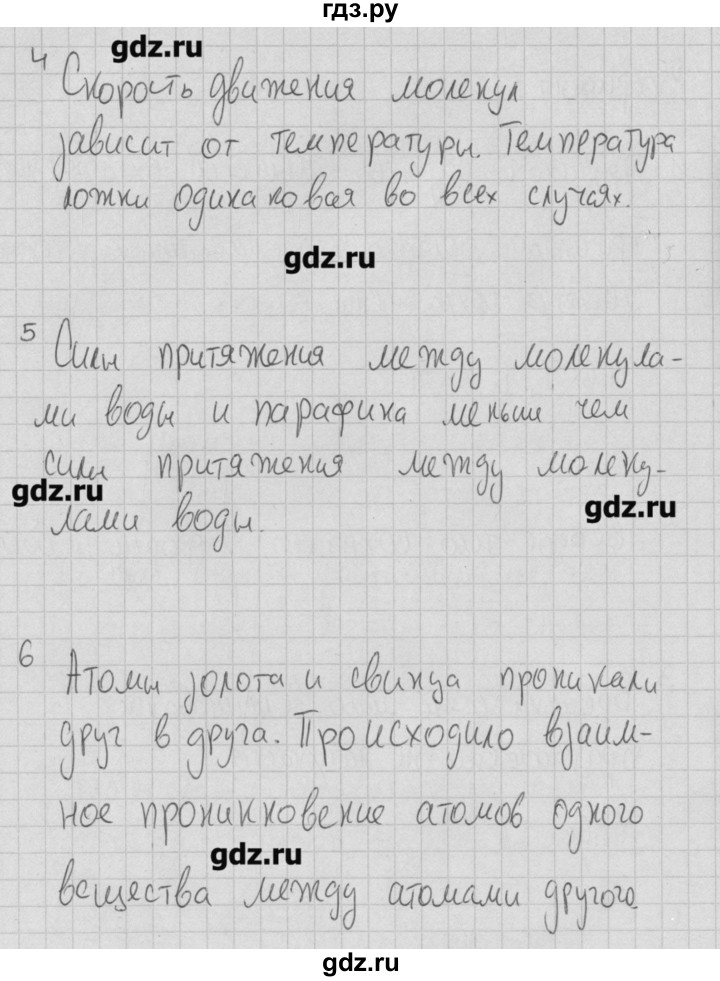 гдз.ру
gdz.ru
4 Скорость движения молекул
зависит от температуры. Температура
ложки одинаковая во всех случаях.
gdz.ru
5 Силы притяжения между молекула-
ми воды и парафина меньши чем
силы притяжения между молеку-
gdz.ru
gdz.ru
лами воды.
6 Атомы золота и свинца проникали
друг в друга. Происходило взаим-
ное проникновение атомов одного
gdz.ru
вещества между атомами другого.
gdz.ru